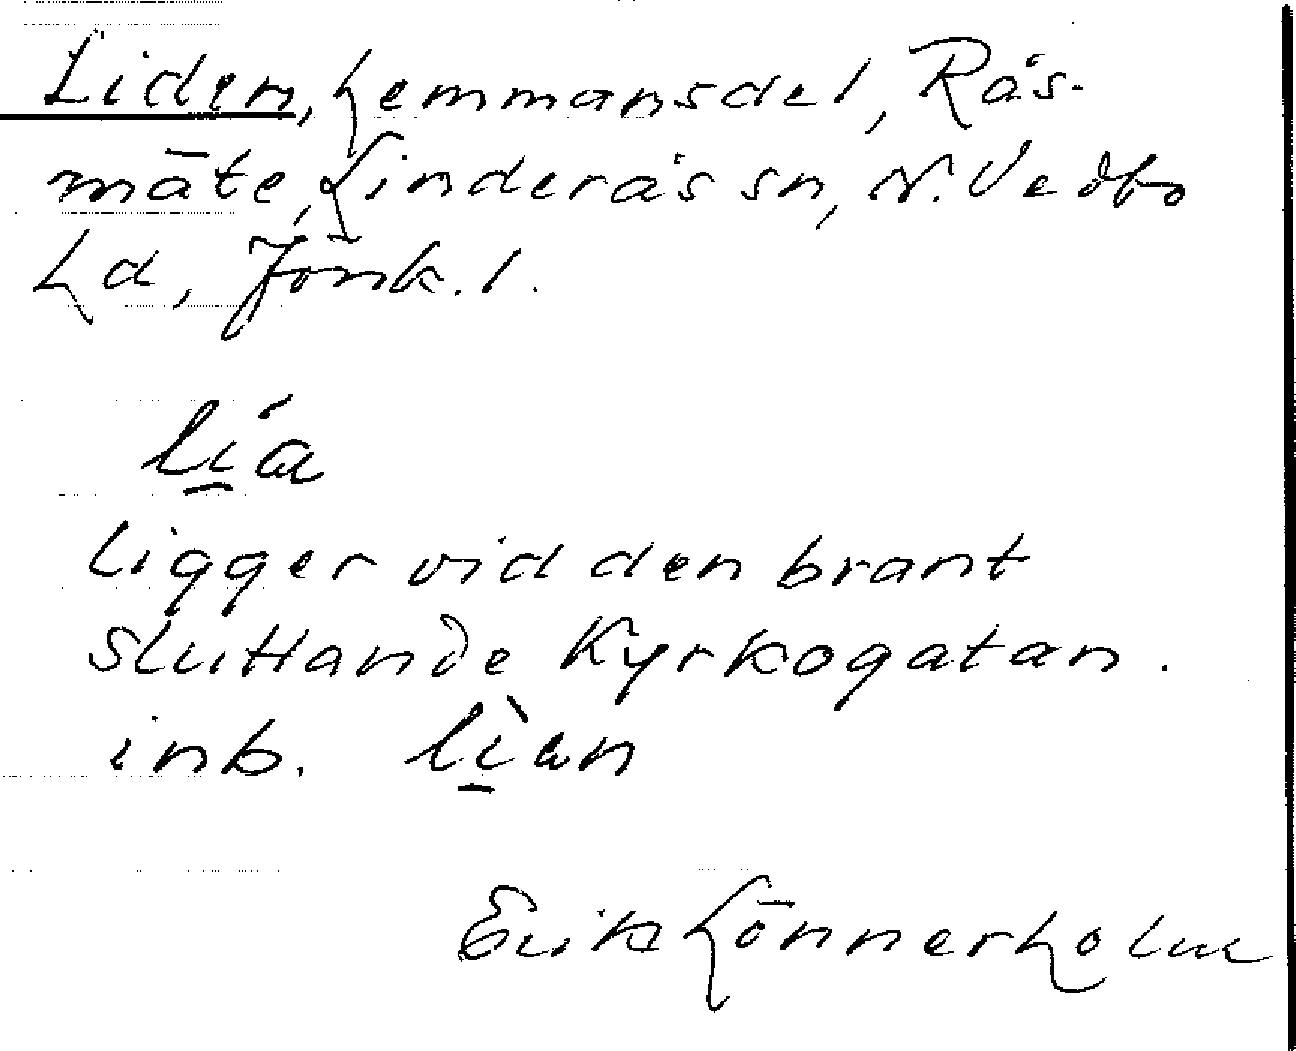 Liden, hemmansdel, Rås-
mäte, Linderås sn, N. Vedbo
hd, Jönk. l.
lía
ligger vid den brant
sluttande Kyrkogatan.
inb. lìan
Erik Lönnerholm